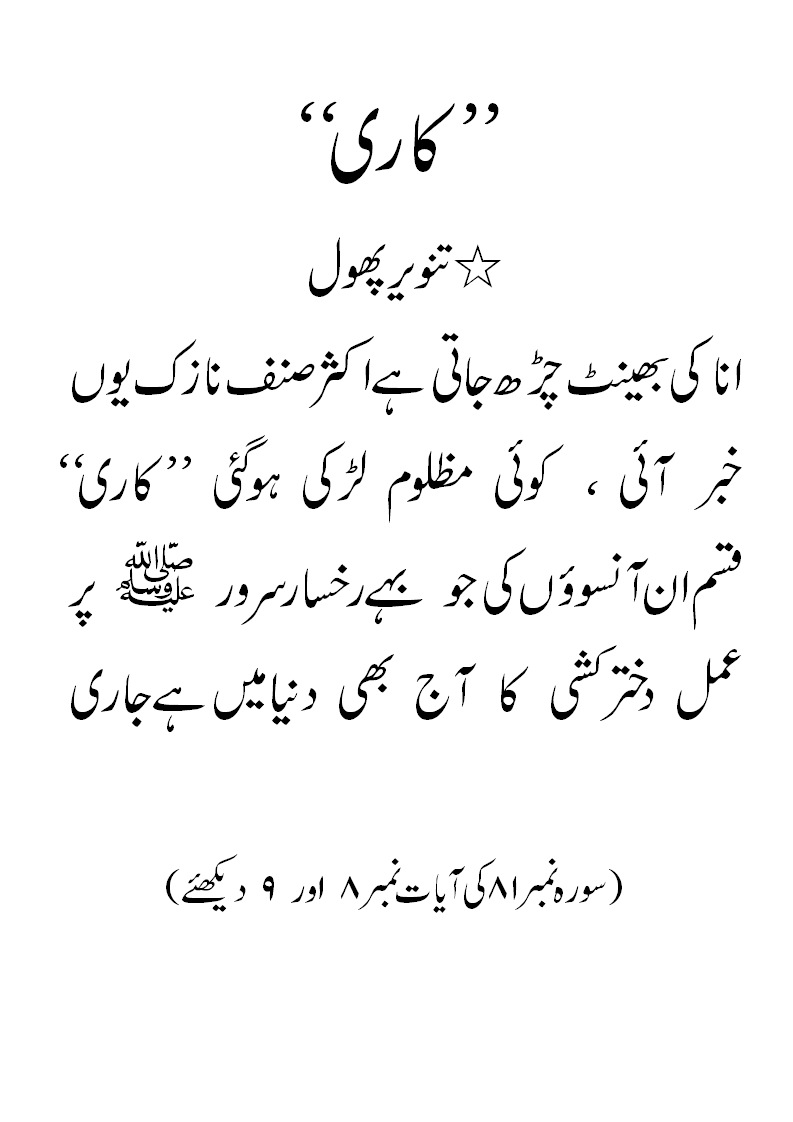 ’’کاری‘‘
☆تنویر پھول
انا کی بھینٹ چڑھ جاتی ہے اکثر صنف نازک یوں
خبر آئی ، کوئی مظلوم لڑکی ہوگئی ’’کاری‘‘
قسم ان آنسوؤں کی جو بہے رخسار سرور ﷺ پر
عمل دختر کشی کا آج بھی دنیا میں ہے جاری
(سورہ نمبر ۸۱ کی آیات نمبر ۸ اور ۹ دیکھئے)